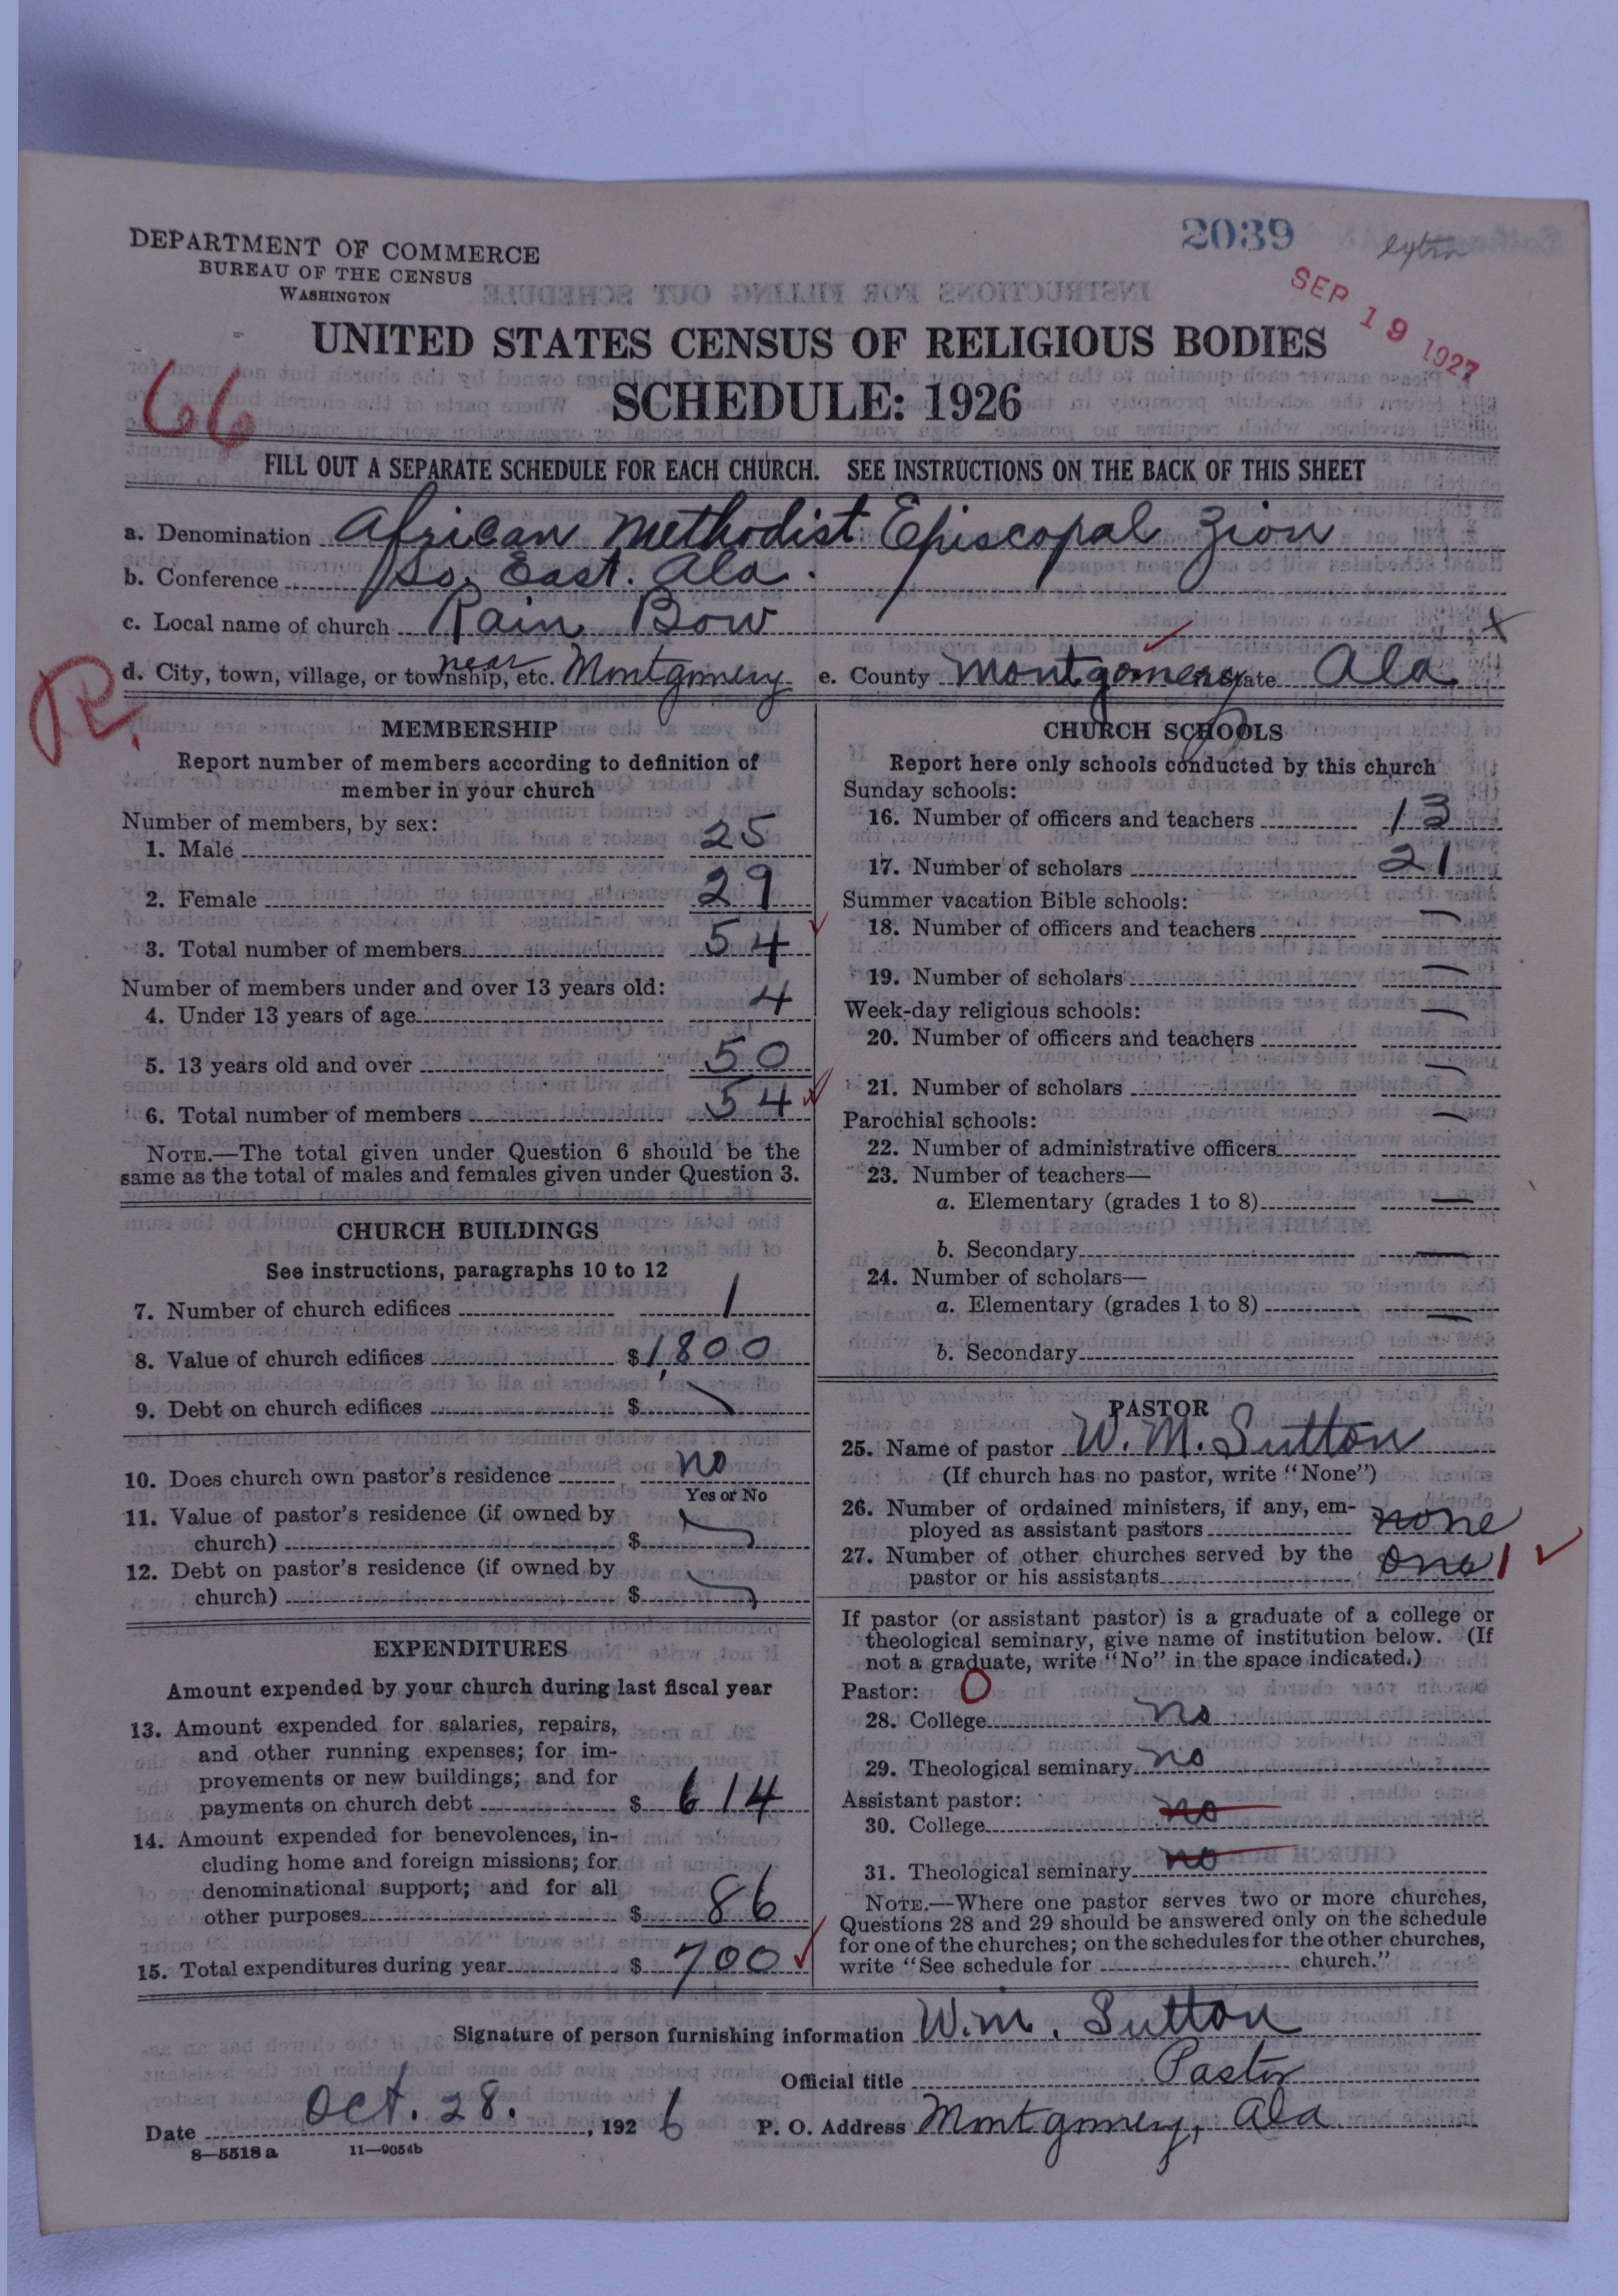 2039
extra
DEPARTMENT OF COMMERCE
BUREAU OF THE CENSUS
WASHINGTON
SEP 19 1927
UNITED STATES CENSUS OF RELIGIOUS BODIES
66
SCHEDULE: 1926
FILL OUT A SEPARATE SCHEDULE FOR EACH CHURCH. SEE INSTRUCTIONS ON THE BACK OF THIS SHEET
a. Denomination African Methodist Episcopal Zion
b. Conference So. East. Ala.
c. Local name of church Rain Bow x
R.
d. City, town, village, or township, etc. near Montgomery e. County Montgomery State Ala
MEMBERSHIP
Report number of members according to definition of
member in your church
Number of members, by sex:
1. Male 25
2. Female 29
3. Total number of members 54
Number of members under and over 13 years old:
4. Under 13 years of age 4
5. 13 years old and over 50
6. Total number of members 54
NOTE.—The total given under Question 6 should be the
same as the total of males and females given under Question 3.
CHURCH BUILDINGS
See instructions, paragraphs 10 to 12
7. Number of church edifices 1
8. Value of church edifices $ 1,800
9. Debt on church edifices $
10. Does church own pastor's residence no
Yes or No
11. Value of pastor's residence (if owned by
church) $
12. Debt on pastor's residence (if owned by
church) $
EXPENDITURES
Amount expended by your church during last fiscal year
13. Amount expended for salaries, repairs,
and other running expenses; for im-
provements or new buildings; and for
payments on church debt $ 614
14. Amount expended for benevolences, in-
cluding home and foreign missions; for
denominational support; and for all
other purposes $ 86
15. Total expenditures during year $ 700
CHURCH SCHOOLS
Report here only schools conducted by this church
Sunday schools:
16. Number of officers and teachers 13
17. Number of scholars 21
Summer vacation Bible schools:
18. Number of officers and teachers —
19. Number of scholars —
Week-day religious schools:
20. Number of officers and teachers —
21. Number of scholars —
Parochial schools:
22. Number of administrative officers —
23. Number of teachers—
a. Elementary (grades 1 to 8) —
b. Secondary —
24. Number of scholars—
a. Elementary (grades 1 to 8) —
b. Secondary
PASTOR
25. Name of pastor W. M. Sutton
(If church has no pastor, write "None")
26. Number of ordained ministers, if any, em-
ployed as assistant pastors none
27. Number of other churches served by the
pastor or his assistants one 1
If pastor (or assistant pastor) is a graduate of a college or
theological seminary, give name of institution below. (If
not a graduate, write "No" in the space indicated.)
Pastor: 0
28. College no
29. Theological seminary no
Assistant pastor:
30. College no
31. Theological seminary no
NOTE.—Where one pastor serves two or more churches,
Questions 28 and 29 should be answered only on the schedule
for one of the churches; on the schedules for the other churches,
write "See schedule for church."
Signature of person furnishing information W. M. Sutton
Official title Pastor
Date Oct. 28. , 1926 P. O. Address Montgomery, Ala.
8—5518 a 11—9054b